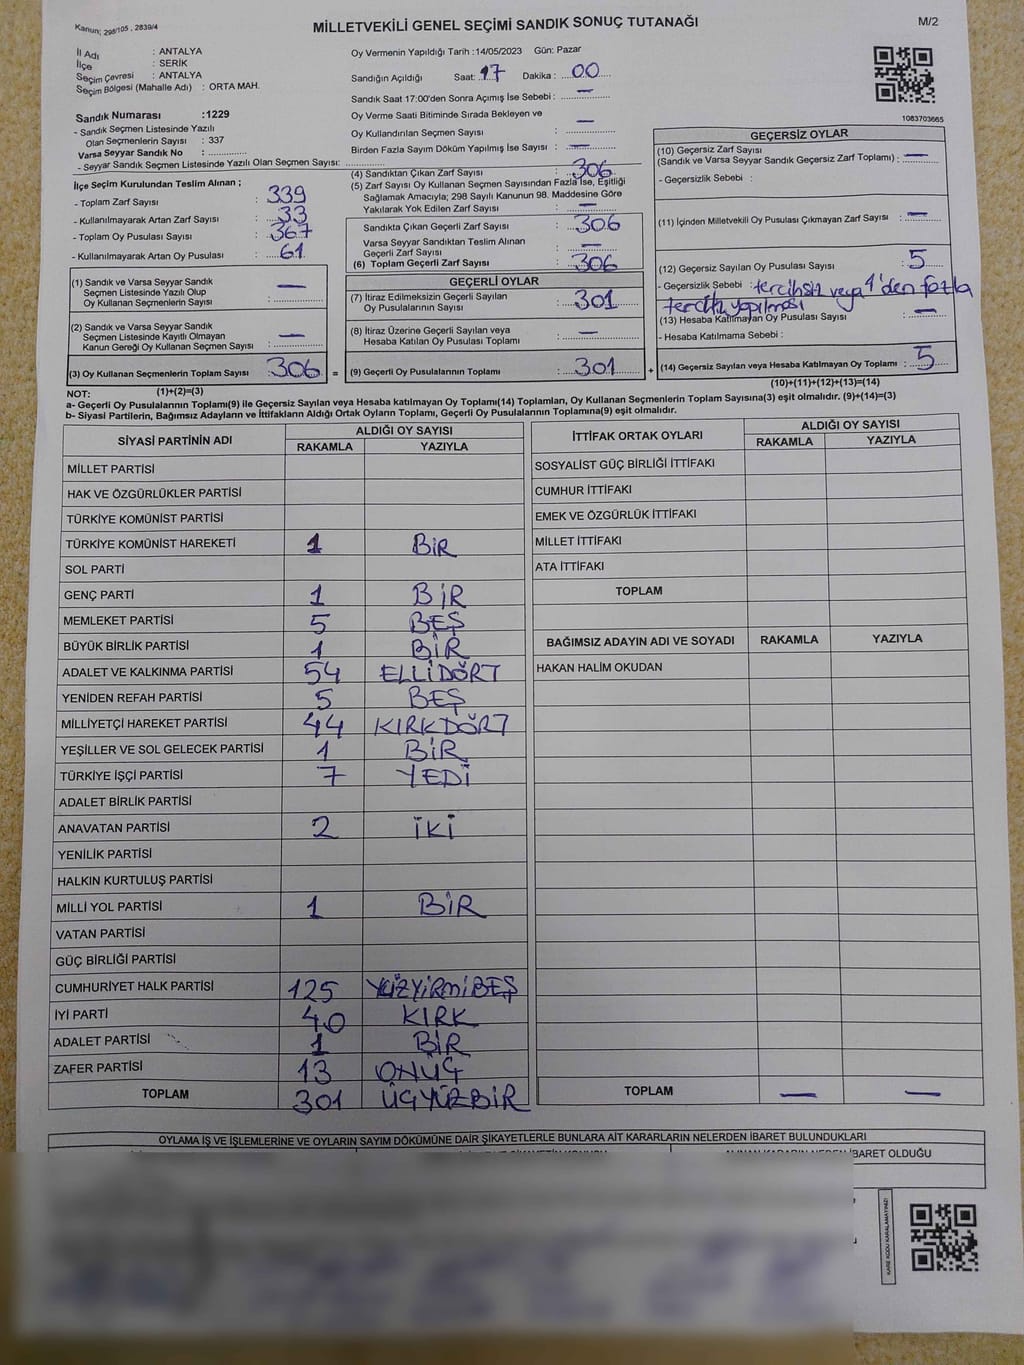 Kanun; 298/105 , 2839/4
MİLLETVEKİLİ GENEL SEÇİMİ SANDIK SONUÇ TUTANAĞI
M/2
İl Adı : ANTALYA
İlçe : SERİK
Seçim Çevresi : ANTALYA
Seçim Bölgesi (Mahalle Adı) : ORTA MAH.
Oy Vermenin Yapıldığı Tarih :14/05/2023 Gün: Pazar
Sandığın Açıldığı Saat: 17 Dakika : 00
Sandık Saat 17:00'den Sonra Açımış İse Sebebi : —
Oy Verme Saati Bitiminde Sırada Bekleyen ve
Oy Kullandırılan Seçmen Sayısı : —
Birden Fazla Sayım Döküm Yapılmış İse Sayısı : —
1083703665
Sandık Numarası :1229
- Sandık Seçmen Listesinde Yazılı
Olan Seçmenlerin Sayısı : 337
Varsa Seyyar Sandık No :
- Seyyar Sandık Seçmen Listesinde Yazılı Olan Seçmen Sayısı:
İlçe Seçim Kurulundan Teslim Alınan ;
- Toplam Zarf Sayısı : 339
- Kullanılmayarak Artan Zarf Sayısı : 33
- Toplam Oy Pusulası Sayısı : 367
- Kullanılmayarak Artan Oy Pusulası : 61
(1) Sandık ve Varsa Seyyar Sandık
Seçmen Listesinde Yazılı Olup
Oy Kullanan Seçmenlerin Sayısı : —
(2) Sandık ve Varsa Seyyar Sandık
Seçmen Listesinde Kayıtlı Olmayan
Kanun Gereği Oy Kullanan Seçmen Sayısı : —
(3) Oy Kullanan Seçmenlerin Toplam Sayısı : 306 =
(1)+(2)=(3)
(4) Sandıktan Çıkan Zarf Sayısı : 306
(5) Zarf Sayısı Oy Kullanan Seçmen Sayısından Fazla İse, Eşitliği
Sağlamak Amacıyla; 298 Sayılı Kanunun 98. Maddesine Göre
Yakılarak Yok Edilen Zarf Sayısı : —
Sandıkta Çıkan Geçerli Zarf Sayısı : 306
Varsa Seyyar Sandıktan Teslim Alınan
Geçerli Zarf Sayısı : —
(6) Toplam Geçerli Zarf Sayısı : 306
GEÇERLİ OYLAR
(7) İtiraz Edilmeksizin Geçerli Sayılan
Oy Pusulalarının Sayısı : 301
(8) İtiraz Üzerine Geçerli Sayılan veya
Hesaba Katılan Oy Pusulası Toplamı : —
(9) Geçerli Oy Pusulalarının Toplamı : 301 +
GEÇERSİZ OYLAR
(10) Geçersiz Zarf Sayısı
(Sandık ve Varsa Seyyar Sandık Geçersiz Zarf Toplamı) : —
- Geçersizlik Sebebi :
(11) İçinden Milletvekili Oy Pusulası Çıkmayan Zarf Sayısı : —
(12) Geçersiz Sayılan Oy Pusulası Sayısı : 5
- Geçersizlik Sebebi : tercihsiz veya 4'den fazla
tercih yapılması
(13) Hesaba Katılmayan Oy Pusulası Sayısı : —
- Hesaba Katılmama Sebebi :
(14) Geçersiz Sayılan veya Hesaba Katılmayan Oy Toplamı : 5
(10)+(11)+(12)+(13)=(14)
NOT:
a- Geçerli Oy Pusulalarının Toplamı(9) ile Geçersiz Sayılan veya Hesaba katılmayan Oy Toplamı(14) Toplamları, Oy Kullanan Seçmenlerin Toplam Sayısına(3) eşit olmalıdır. (9)+(14)=(3)
b- Siyasi Partilerin, Bağımsız Adayların ve İttifakların Aldığı Ortak Oyların Toplamı, Geçerli Oy Pusulalarının Toplamına(9) eşit olmalıdır.
SİYASİ PARTİNİN ADI ALDIĞI OY SAYISI
RAKAMLA YAZIYLA
MİLLET PARTİSİ
HAK VE ÖZGÜRLÜKLER PARTİSİ
TÜRKİYE KOMÜNİST PARTİSİ
TÜRKİYE KOMÜNİST HAREKETİ 1 BİR
SOL PARTİ
GENÇ PARTİ 1 BİR
MEMLEKET PARTİSİ 5 BEŞ
BÜYÜK BİRLİK PARTİSİ 1 BİR
ADALET VE KALKINMA PARTİSİ 54 ELLİDÖRT
YENİDEN REFAH PARTİSİ 5 BEŞ
MİLLİYETÇİ HAREKET PARTİSİ 44 KIRKDÖRT
YEŞİLLER VE SOL GELECEK PARTİSİ 1 BİR
TÜRKİYE İŞÇİ PARTİSİ 7 YEDİ
ADALET BİRLİK PARTİSİ
ANAVATAN PARTİSİ 2 İKİ
YENİLİK PARTİSİ
HALKIN KURTULUŞ PARTİSİ
MİLLİ YOL PARTİSİ 1 BİR
VATAN PARTİSİ
GÜÇ BİRLİĞİ PARTİSİ
CUMHURİYET HALK PARTİSİ 125 YÜZYİRMİBEŞ
İYİ PARTİ 40 KIRK
ADALET PARTİSİ 1 BİR
ZAFER PARTİSİ 13 ONÜÇ
TOPLAM 301 ÜÇYÜZBİR
İTTİFAK ORTAK OYLARI ALDIĞI OY SAYISI
RAKAMLA YAZIYLA
SOSYALİST GÜÇ BİRLİĞİ İTTİFAKI
CUMHUR İTTİFAKI
EMEK VE ÖZGÜRLÜK İTTİFAKI
MİLLET İTTİFAKI
ATA İTTİFAKI
TOPLAM
BAĞIMSIZ ADAYIN ADI VE SOYADI RAKAMLA YAZIYLA
HAKAN HALİM OKUDAN
TOPLAM — —
OYLAMA İŞ VE İŞLEMLERİNE VE OYLARIN SAYIM DÖKÜMÜNE DAİR ŞİKAYETLERLE BUNLARA AİT KARARLARIN NELERDEN İBARET BULUNDUKLARI
İBARET OLDUĞU
KARE KODU KARALAMAYINIZ!